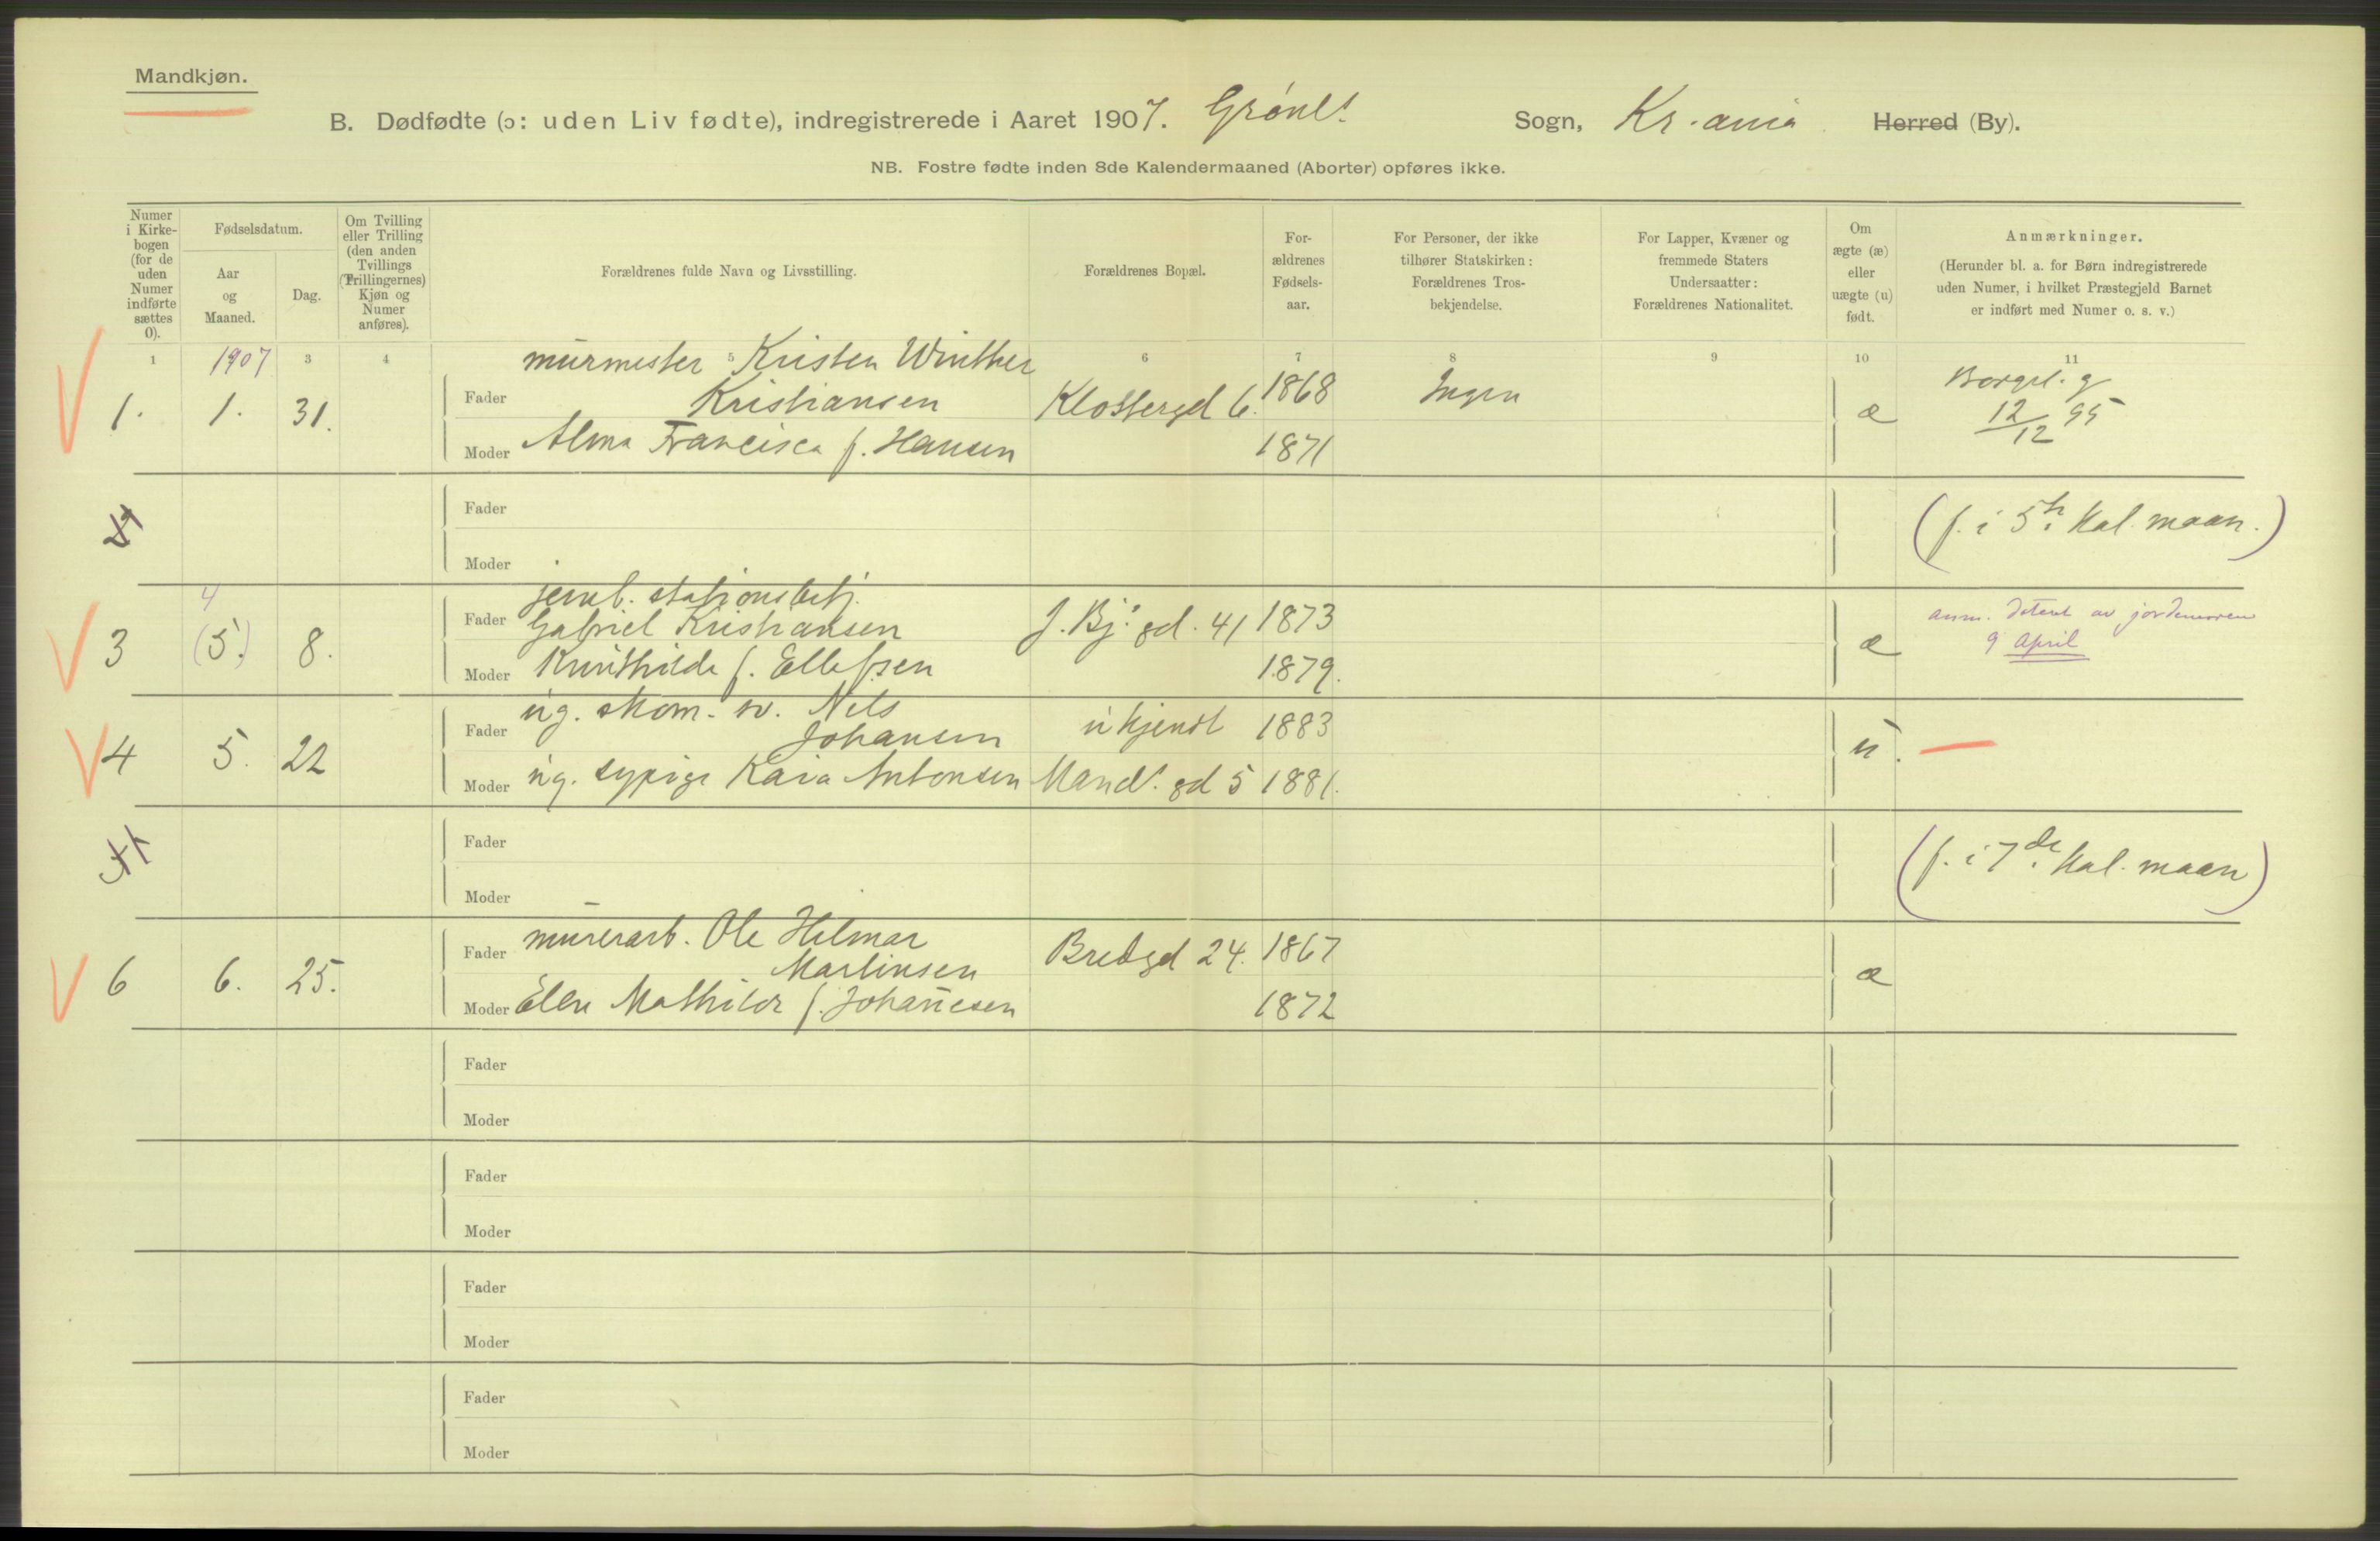 Mandkjøn.
B. Dødfødte (ɔ: uden Liv fødte), indregistrerede i Aaret 1907. Grønl. Sogn, Kr.ania Herred (By).
NB. Fostre fødte inden 8de Kalendermaaned (Aborter) opføres ikke.
Numer i Kirkebogen (for de uden Numer indførte sættes 0).
Fødselsdatum.
Aar og Maaned.
Dag.
Om Tvilling eller Trilling (den anden Tvillings (Trillingernes) Kjøn og Numer anføres).
Forældrenes fulde Navn og Livsstilling.
Forældrenes Bopæl.
For-
ældrenes
Fødsels-
aar.
For Personer, der ikke
tilhører Statskirken:
Forældrenes Tros-
bekjendelse.
For Lapper, Kvæner og
fremmede Staters
Undersaatter:
Forældrenes Nationalitet.
Om
ægte (æ)
eller
uægte (u)
født.
Anmærkninger.
(Herunder bl. a. for Børn indregistrerede
uden Numer, i hvilket Præstegjeld Barnet
er indført med Numer o. s. v.)
1 1907 3 4 5 6 7 8 9 10 11
murmester Kristen Winther
1. 1. 31. Fader Kristiansen Klostergd 6. 1868 Ingen æ Borgl. g 12/12 95
Moder Alma Francisca f. Hansen 1871
Fader
(f. i 5te Kal. maan.)
Moder
jernb. stationsbetj.
4
3 (5.) 8. Fader Gabriel Kristiansen J. Bj. gd. 41 1873 æ anm. av jordemoren
9 April
Moder f. Ellefsen 1879.
ug. skom. sv. Nils
4 5. 22 Fader Johansen ukjendt 1883 u.
Moder ug. sypige Kaia Antonsen Mandl. gd 5 1881.
Fader
(f. i 7de Kal. maan)
Moder
murerarb. Ole Hilmar
6 6. 25. Fader Martinsen Bredgd 24. 1867 æ
Moder Ellen Mathilde f. Johannesen 1872
Fader
Moder
Fader
Moder
Fader
Moder
Fader
Moder